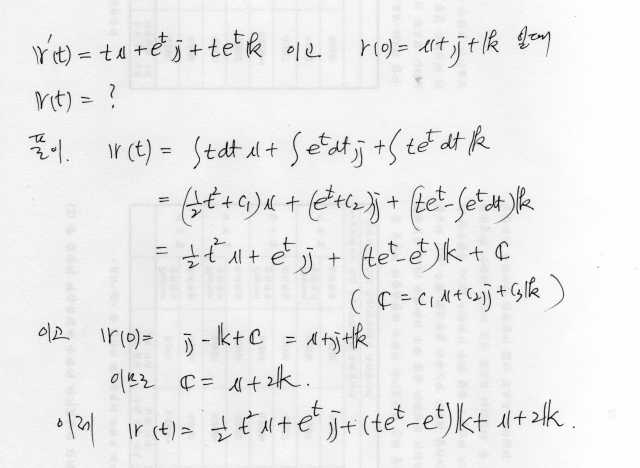 r'(t) = t i + e^t j + te^t k 이고 r(0) = i + j + k 일때
r(t) = ?
풀이. r(t) = ∫t dt i + ∫e^t dt j + ∫te^t dt k
= (1/2 t² + c₁) i + (e^t + c₂) j + (te^t - ∫e^t dt) k
= 1/2 t² i + e^t j + (te^t - e^t) k + C
( C = c₁ i + c₂ j + c₃ k )
이고 r(0) = j - k + C = i + j + k
이므로 C = i + 2k.
이제 r(t) = 1/2 t² i + e^t j + (te^t - e^t) k + i + 2k.